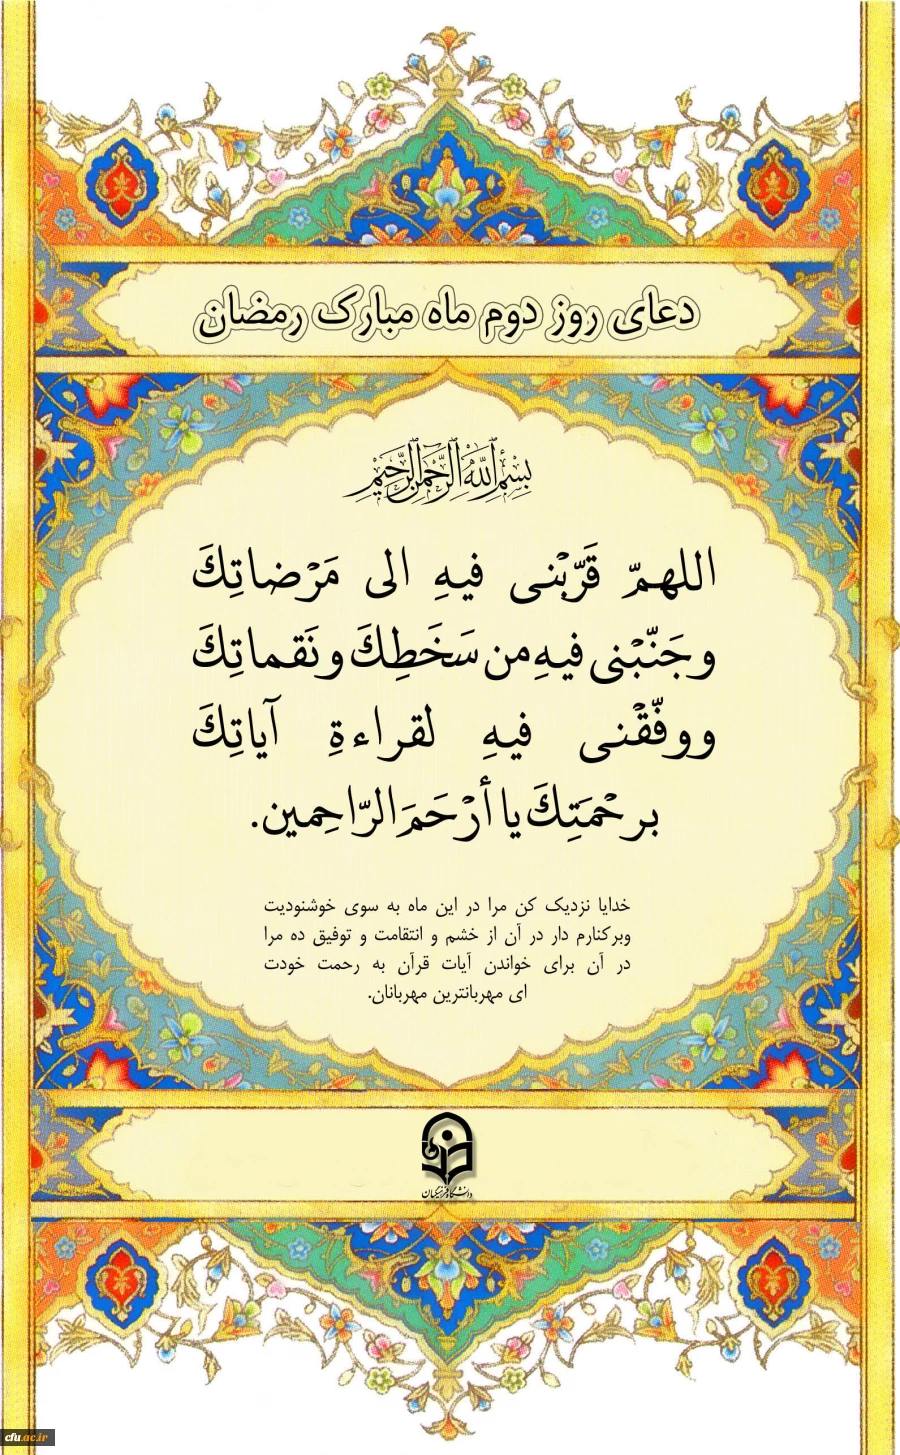 دعای روز دوم ماه مبارک رمضان
بِسْمِ اللَّهِ الرَّحْمَٰنِ الرَّحِيمِ
اللهمّ قَرّبْنی فیهِ الی مَرْضاتِكَ
وجَنّبْنی فیهِ من سَخَطِكَ ونَقماتِكَ
ووفّقْنی فیهِ لقراءةِ آیاتِكَ
برحْمَتِكَ یا أرْحَمَ الرّاحِمین.
خدایا نزدیک کن مرا در این ماه به سوی خوشنودیت
وبرکنارم دار در آن از خشم و انتقامت و توفیق ده مرا
در آن برای خواندن آیات قرآن به رحمت خودت
ای مهربانترین مهربانان.
دانشگاه فرهنگیان
cfu.ac.ir